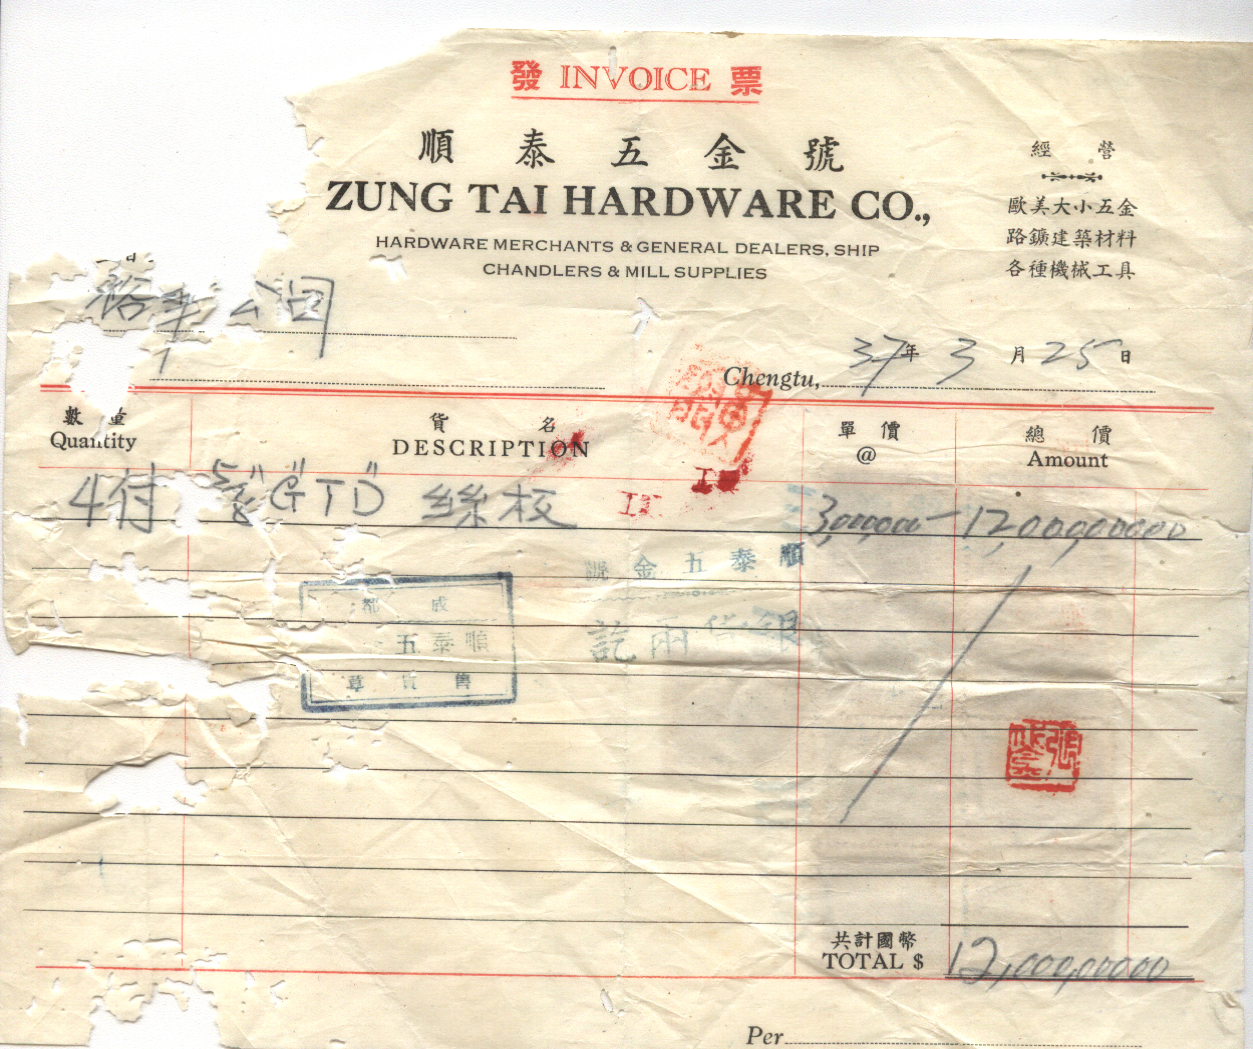 發 INVOICE 票
順泰五金號
ZUNG TAI HARDWARE CO.,
HARDWARE MERCHANTS & GENERAL DEALERS, SHIP
CHANDLERS & MILL SUPPLIES
經 營
歐美大小五金
路鑛建築材料
各種機械工具
公司
Chengtu, 37年 3月25日
數量 貨名 單價 總價
Quantity DESCRIPTION @ Amount
4付 5/8" "GTD" 絲板 3,000,000— 12,000,000.00
順泰五金號
銀貨兩訖
成都
順泰五
售貨章
共計國幣
TOTAL $ 12,000,000.00
Per